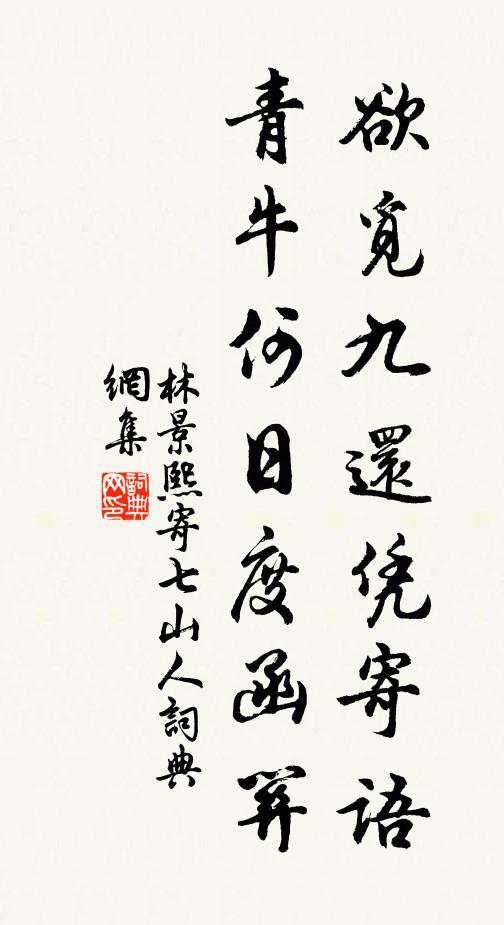 欲覓九還凭寄語
青牛何日度函關
林景熙寄七山人詞典
網集
詞典網印